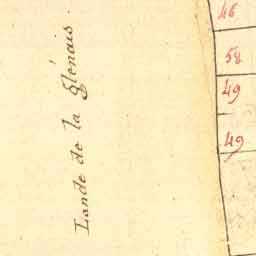 Lande de la Glénais.
46
58
49
49